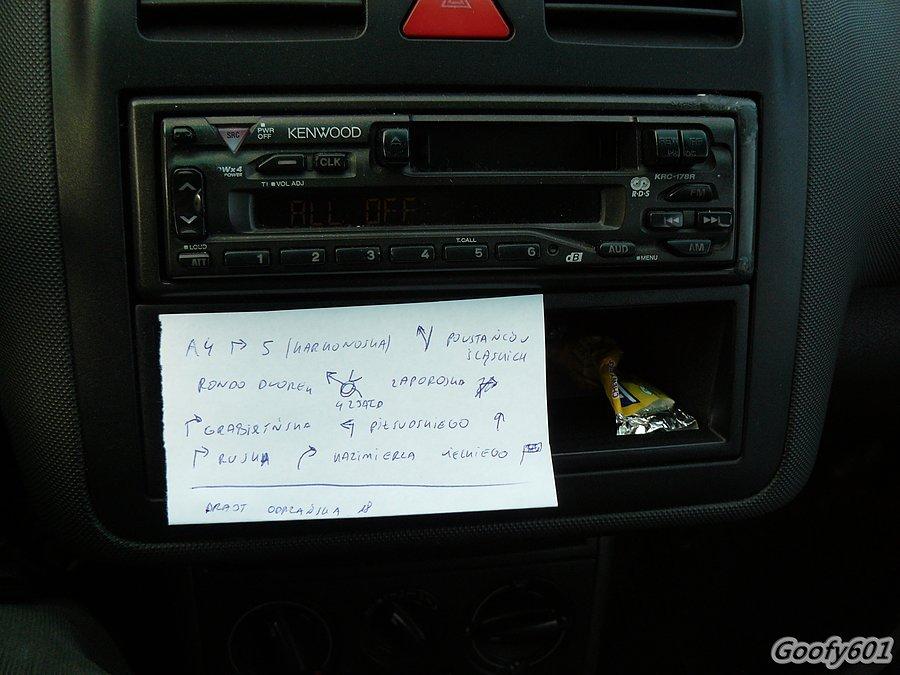 SRC PWR OFF KENWOOD
CLK
POWER
T.I VOL ADJ
KRC-178R
R·D·S FM
ALL OFF
LOUD T.CALL
ATT 1 2 3 4 5 6 AUD MENU AM
A4 5 (KARKONOSKA) POWSTAŃCÓW
ŚLĄSKICH
RONDO ZAPOROSKA
4 ZJAZD
GRABISZYŃSKA PIŁSUDSKIEGO
RUSKA KAZIMIERZA WIELKIEGO
ODRZAŃSKA 18
Goofy601